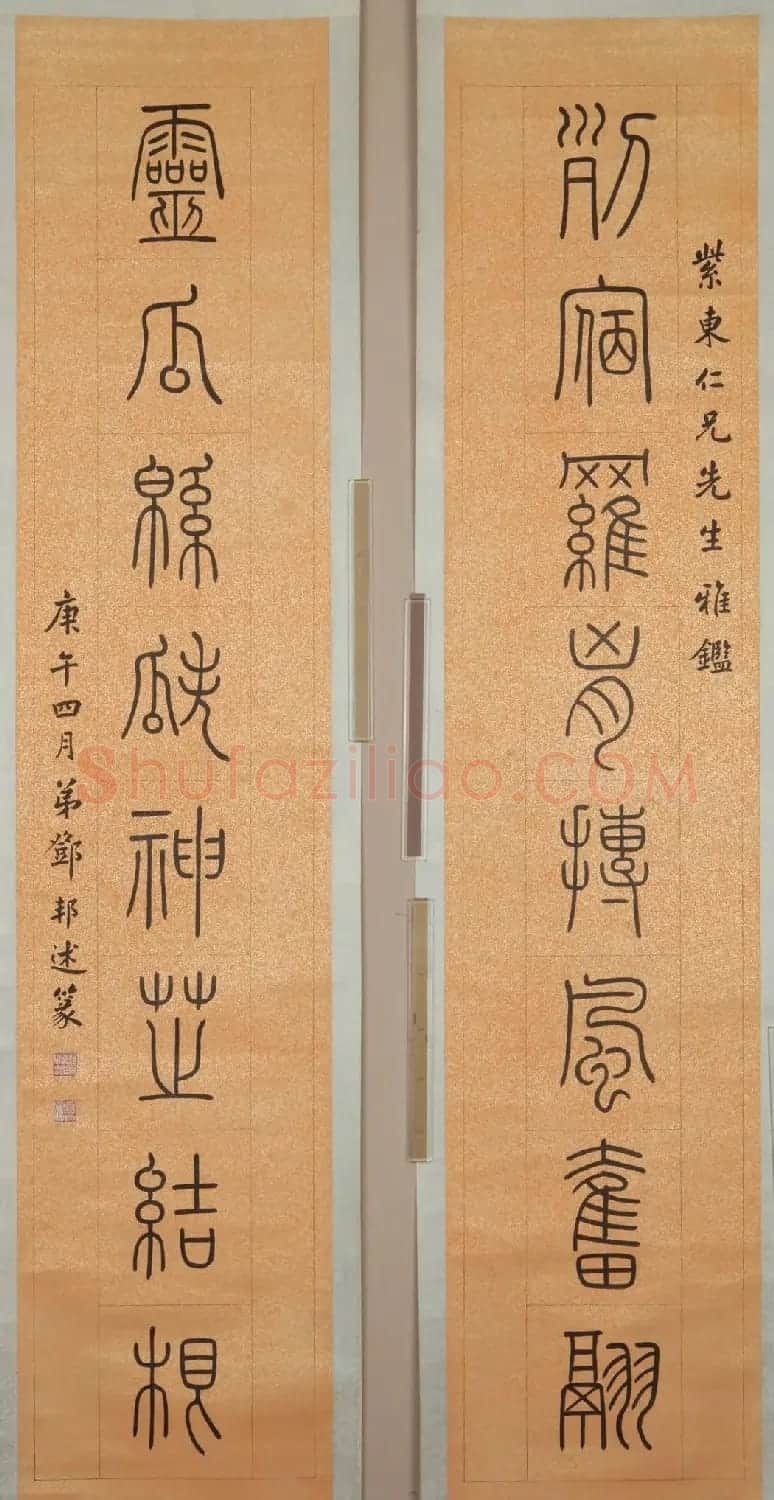 紫東仁兄先生雅鑑
列宿羅胷摶風奮翮
靈瓜緜瓞神芝結根
庚午四月弟鄧邦述篆
Shufaziliao.COM